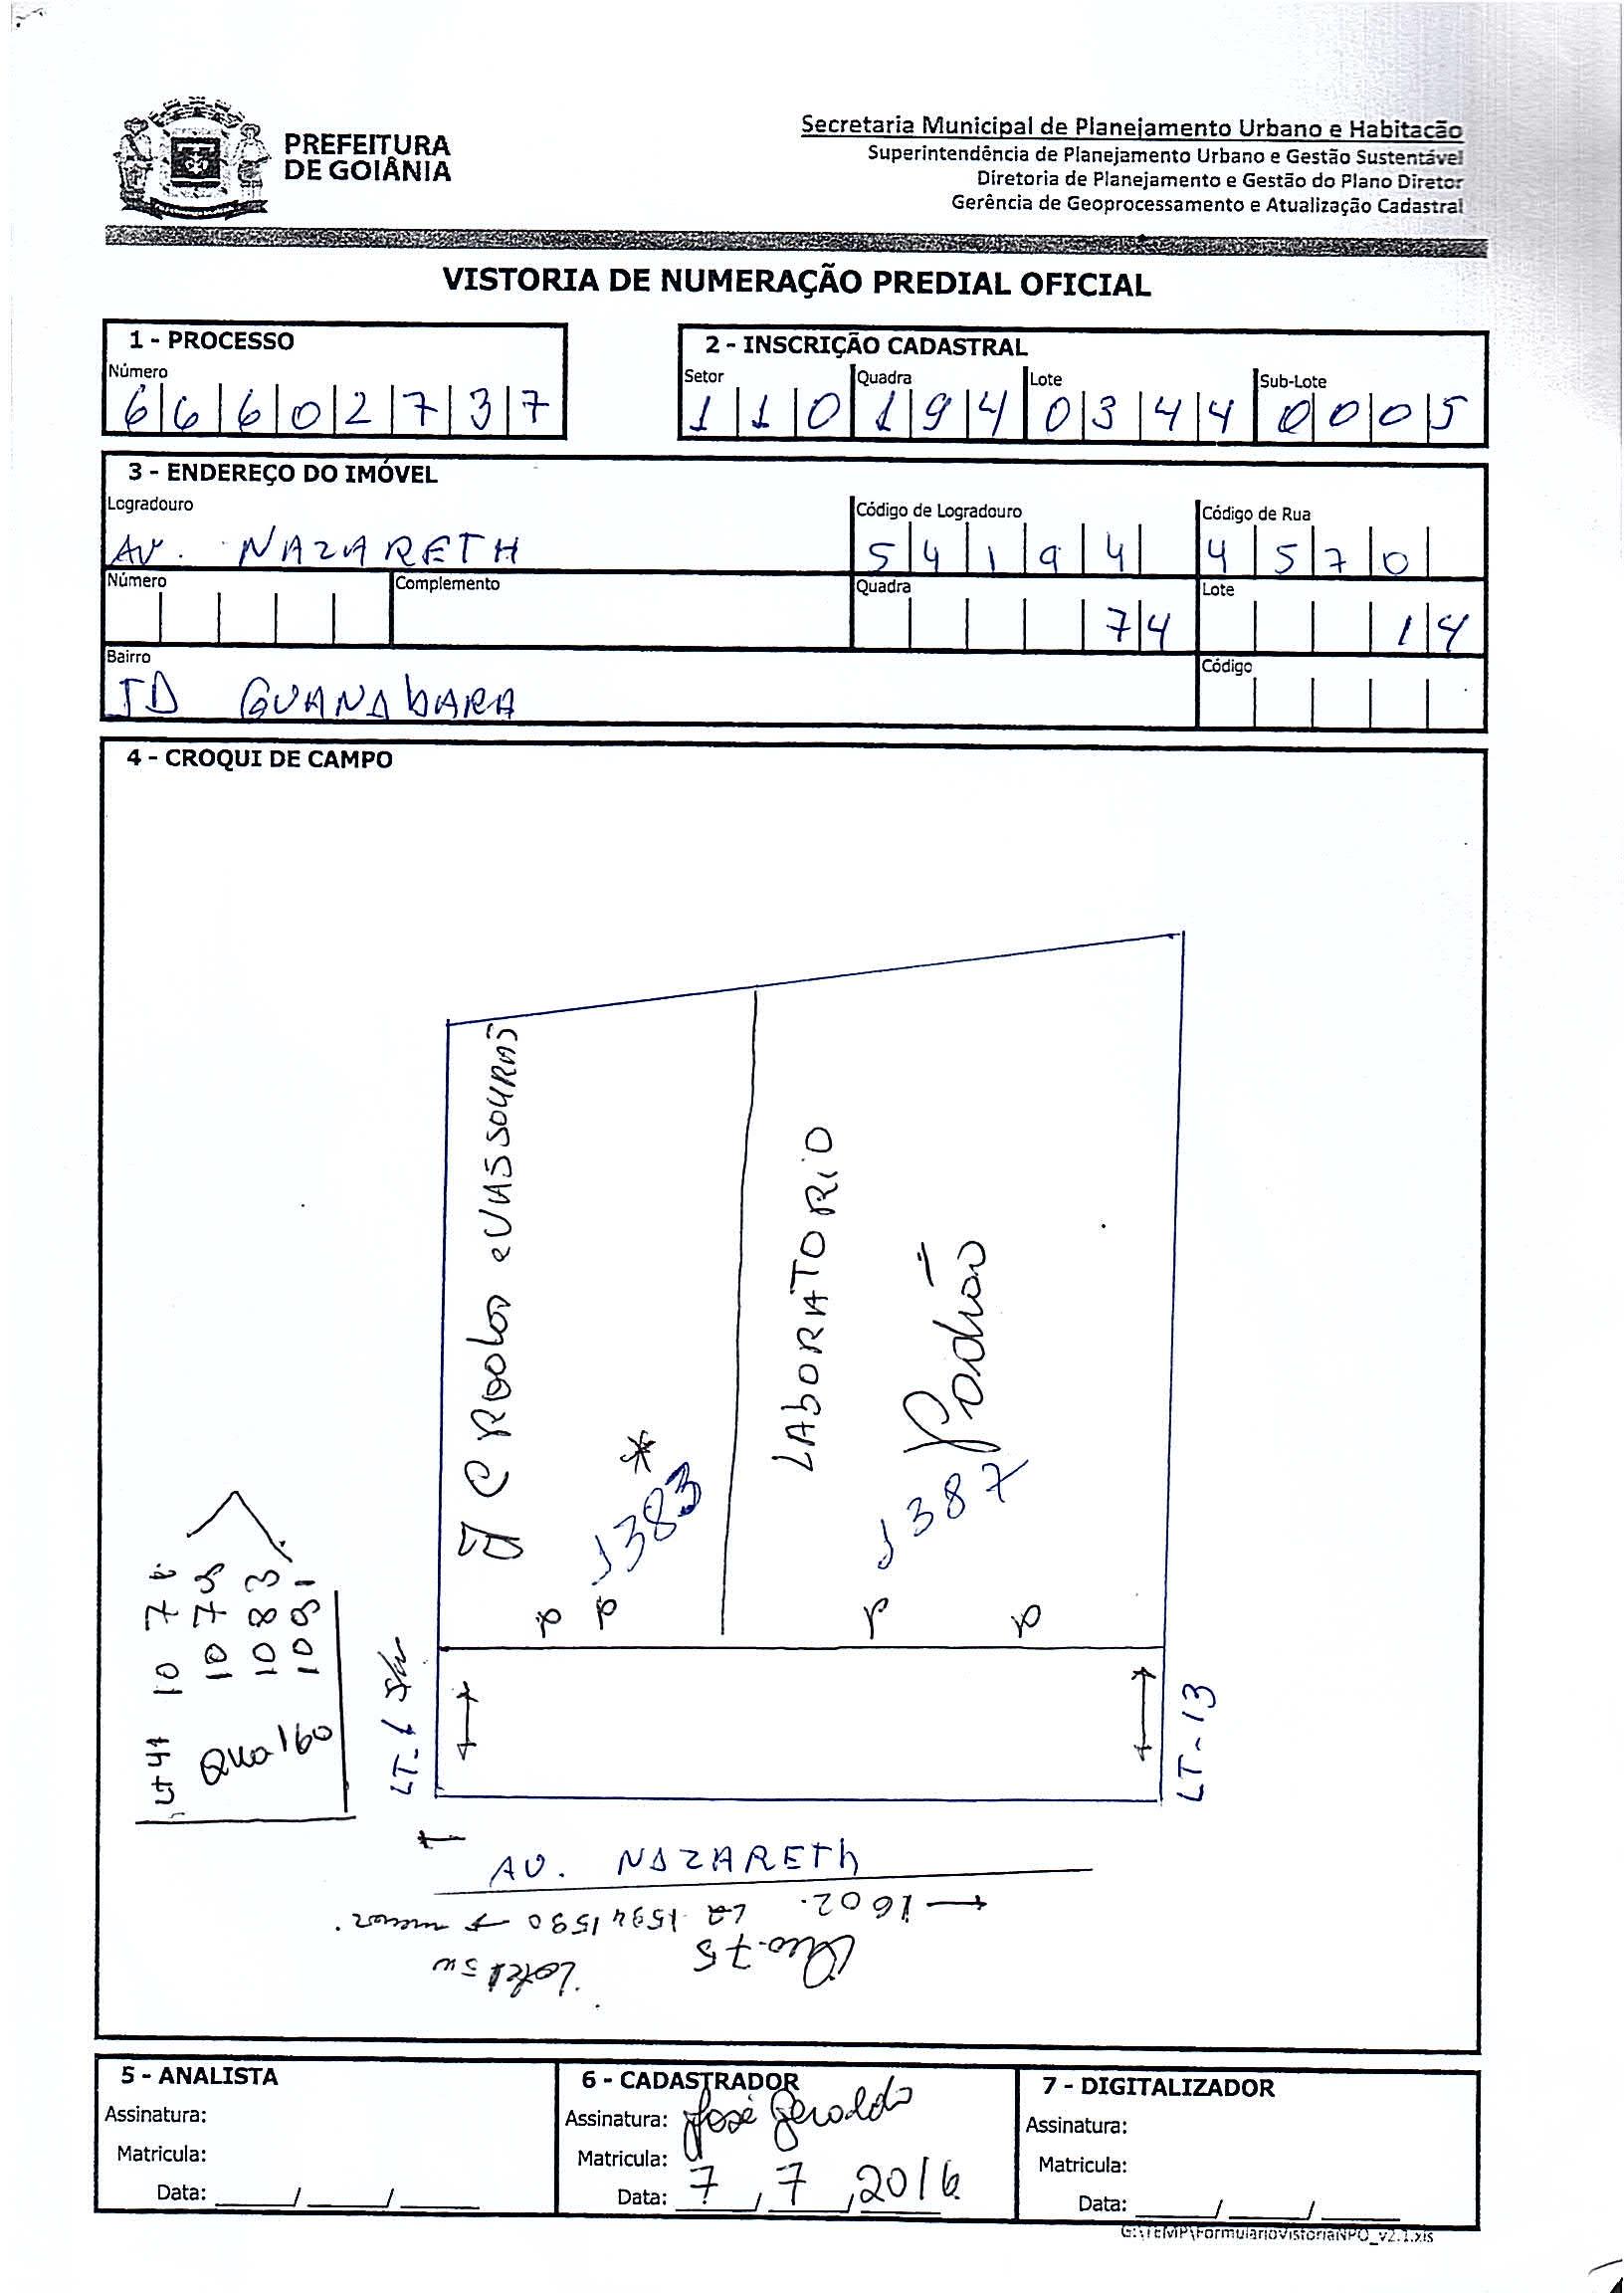 PREFEITURA
DE GOIÂNIA
Secretaria Municipal de Planejamento Urbano e Habitação
Superintendência de Planejamento Urbano e Gestão Sustentável
Diretoria de Planejamento e Gestão do Plano Diretor
Gerência de Geoprocessamento e Atualização Cadastral
VISTORIA DE NUMERAÇÃO PREDIAL OFICIAL
1 - PROCESSO
Número
66602737
2 - INSCRIÇÃO CADASTRAL
Setor Quadra Lote Sub-Lote
110 194 0344 0005
3 - ENDEREÇO DO IMÓVEL
Logradouro Código de Logradouro Código de Rua
AV. NAZARETH 54194 4570
Número Complemento Quadra Lote
74 14
Bairro Código
JD GUANABARA
4 - CROQUI DE CAMPO
e VASSOURAS
*
1383
LABORATORIO
Padrão
1387
1079
1083
1091
LT-13
AV. NAZARETH
1602.
1594 1590 menor.
Qua.75
5 - ANALISTA
Assinatura:
Matricula:
Data: ___/___/___
6 - CADASTRADOR
Assinatura: José Geraldo
Matricula:
Data: 7/7/2016
7 - DIGITALIZADOR
Assinatura:
Matricula:
Data: ___/___/___
G:\TEMP\FormularioVistoriaNPO_v2.1.xls